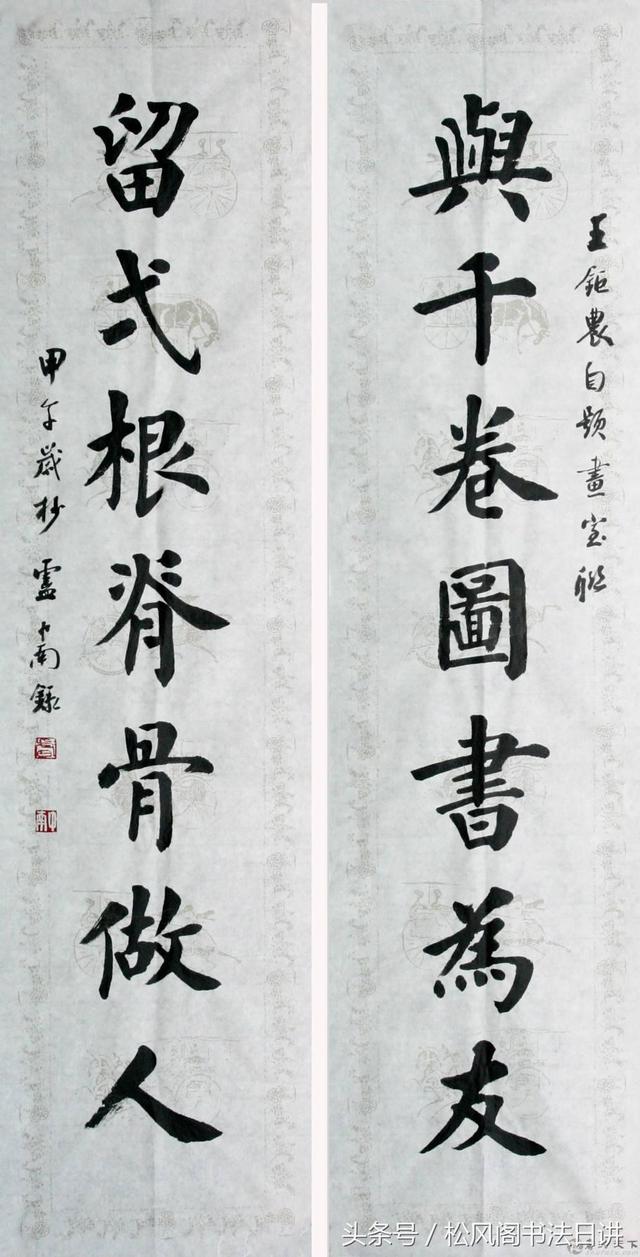 王鉅農自题畫室联
與千卷圖書為友
留弌根脊骨做人
甲午歲杪盧中南録
头条号 / 松风阁书法日讲